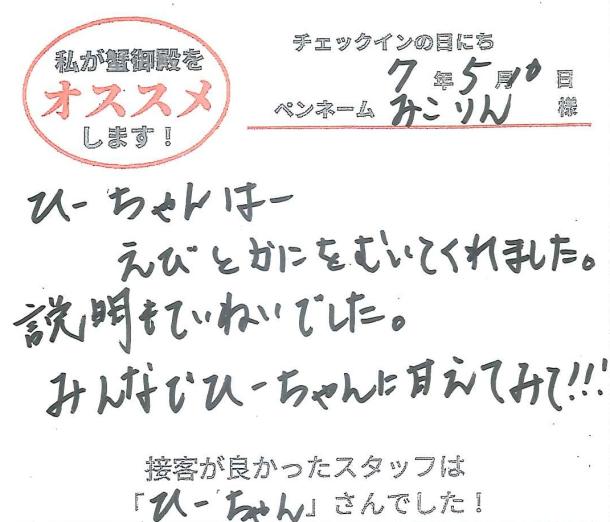 私が蟹御殿を
オススメ
します！
チェックインの日にち
7年5月10日
ペンネーム みこりん 様
ひーちゃんはー
えびとかにをむいてくれました。
説明もていねいでした。
みんなでひーちゃんに甘えてみて!!!
接客が良かったスタッフは
「ひーちゃん」さんでした！